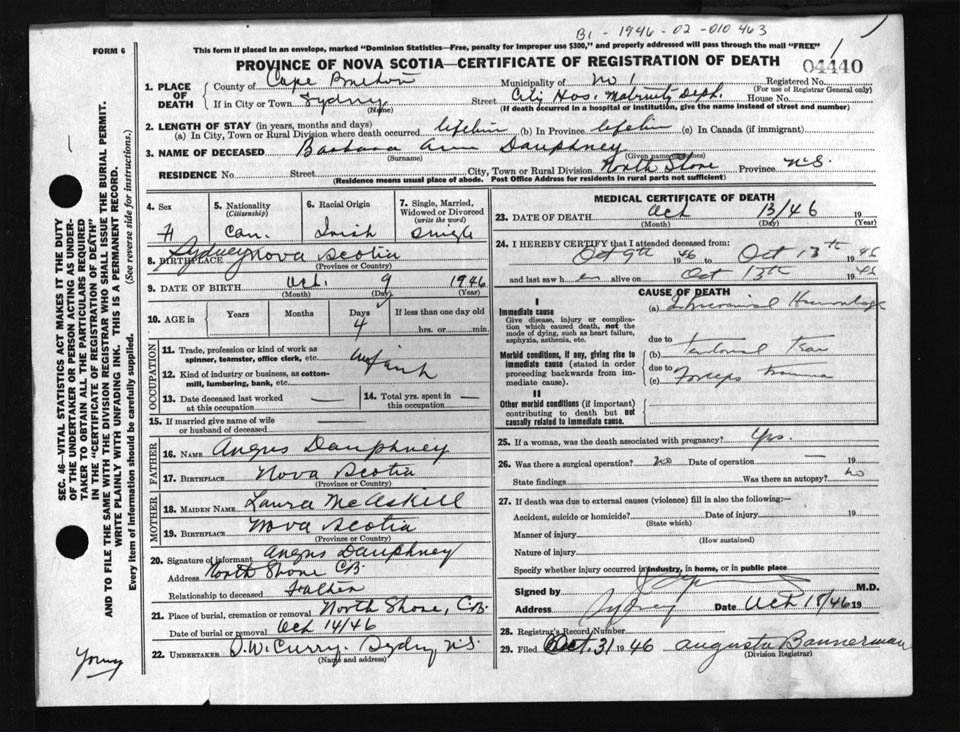 B1 - 1946 - 02 - 010 463
FORM 6
This form if placed in an envelope, marked "Dominion Statistics—Free, penalty for improper use $300," and properly addressed will pass through the mail "FREE"
PROVINCE OF NOVA SCOTIA—CERTIFICATE OF REGISTRATION OF DEATH
04440
1. PLACE OF DEATH
County of Cape Breton Municipality of No 1 Registered No.
(For use of Registrar General only)
If in City or Town Sydney Street City Hos. Maternity Dept. House No.
(Name) (If death occurred in a hospital or institution, give the name instead of street and number)
2. LENGTH OF STAY (in years, months and days)
(a) In City, Town or Rural Division where death occurred lifetime (b) In Province lifetime (c) In Canada (if immigrant)
3. NAME OF DECEASED Barbara Ann Dauphney
(Surname) (Given names)
RESIDENCE No. Street City, Town or Rural Division North Shore Province N.S.
(Residence means usual place of abode. Post Office Address for residents in rural parts not sufficient)
4. Sex
F
5. Nationality
(Citizenship)
Can.
6. Racial Origin
Irish
7. Single, Married, Widowed or Divorced
(write the word)
Single
8. BIRTHPLACE Sydney Nova Scotia
(Province or Country)
9. DATE OF BIRTH Oct. 9 1946
(Month) (Day) (Year)
10. AGE in Years Months Days If less than one day old
4 hrs. or min.
OCCUPATION
11. Trade, profession or kind of work as spinner, teamster, office clerk, etc. Infant
12. Kind of industry or business, as cotton-mill, lumbering, bank, etc.
13. Date deceased last worked at this occupation —
14. Total yrs. spent in this occupation —
15. If married give name of wife or husband of deceased —
FATHER
16. NAME Angus Dauphney
17. BIRTHPLACE Nova Scotia
(Province or Country)
MOTHER
18. MAIDEN NAME Laura McAskill
19. BIRTHPLACE Nova Scotia
(Province or Country)
20. Signature of informant Angus Dauphney
Address North Shore C.B.
Relationship to deceased Father
21. Place of burial, cremation or removal North Shore, C.B.
Date of burial or removal Oct 14/46
22. UNDERTAKER D.W. Curry. Sydney N.S.
(Name and address)
MEDICAL CERTIFICATE OF DEATH
23. DATE OF DEATH Oct 13/46 19
(Month) (Day) (Year)
24. I HEREBY CERTIFY that I attended deceased from:
Oct 9th 1946 to Oct 13th 1946
and last saw h er alive on Oct 13th 1946
CAUSE OF DEATH
I
Immediate cause
Give disease, injury or complication which caused death, not the mode of dying, such as heart failure, asphyxia, asthenia, etc.
(a) Intracranial Hemorrhage
due to
Morbid conditions, if any, giving rise to immediate cause (stated in order proceeding backwards from immediate cause).
(b) Tentorial Tear
due to
(c) Forceps trauma
II
Other morbid conditions (if important) contributing to death but not causally related to immediate cause.
25. If a woman, was the death associated with pregnancy? Yes.
26. Was there a surgical operation? No Date of operation — 19
State findings Was there an autopsy? No
27. If death was due to external causes (violence) fill in also the following:—
Accident, suicide or homicide? Date of injury 19
(State which)
Manner of injury
(How sustained)
Nature of injury
Specify whether injury occurred in industry, in home, or in public place
Signed by M.D.
Address Sydney Date Oct 18/46 19
28. Registrar's Record Number
29. Filed Oct. 31 1946 Augusta Bannerman
(Division Registrar)
SEC. 46—VITAL STATISTICS ACT MAKES IT THE DUTY
OF THE UNDERTAKER OR PERSON ACTING AS UNDERTAKER TO OBTAIN ALL THE PARTICULARS REQUIRED
IN THE "CERTIFICATE OF REGISTRATION OF DEATH"
AND TO FILE THE SAME WITH THE DIVISION REGISTRAR WHO SHALL ISSUE THE BURIAL PERMIT.
WRITE PLAINLY WITH UNFADING INK. THIS IS A PERMANENT RECORD.
Every item of information should be carefully supplied. (See reverse side for instructions)
Young